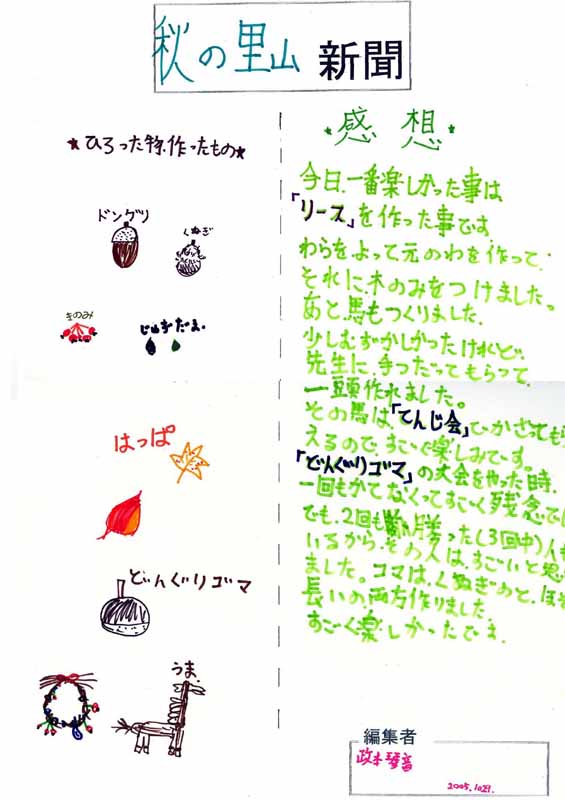 秋の里山 新聞
★ひろった物、作ったもの★
ドングリ
くぬぎ
きのみ
じゅずだま、
はっぱ
どんぐりゴマ
うま、
★感想★
今日、一番楽しかった事は
「リース」を作った事です。
わらをよって元のわを作って、
それに、木のみをつけました。
あと、馬もつくりました。
少しむずかしかったけれど、
先生に、手つだってもらって、
一頭作れました。
その馬は、「てんじ会」でかざってもら
えるので、すごく楽しみです。
「どんぐりゴマ」の大会をやった時、
一回もかてなくってすごく残念で
でも、2回も勝った(3回中)人も
いるから、その人は、すごいと思
ました。コマは、くぬぎのと、ほそ
長いの両方作りました。
すごく楽しかったです。
編集者
政木
2005.10.29.